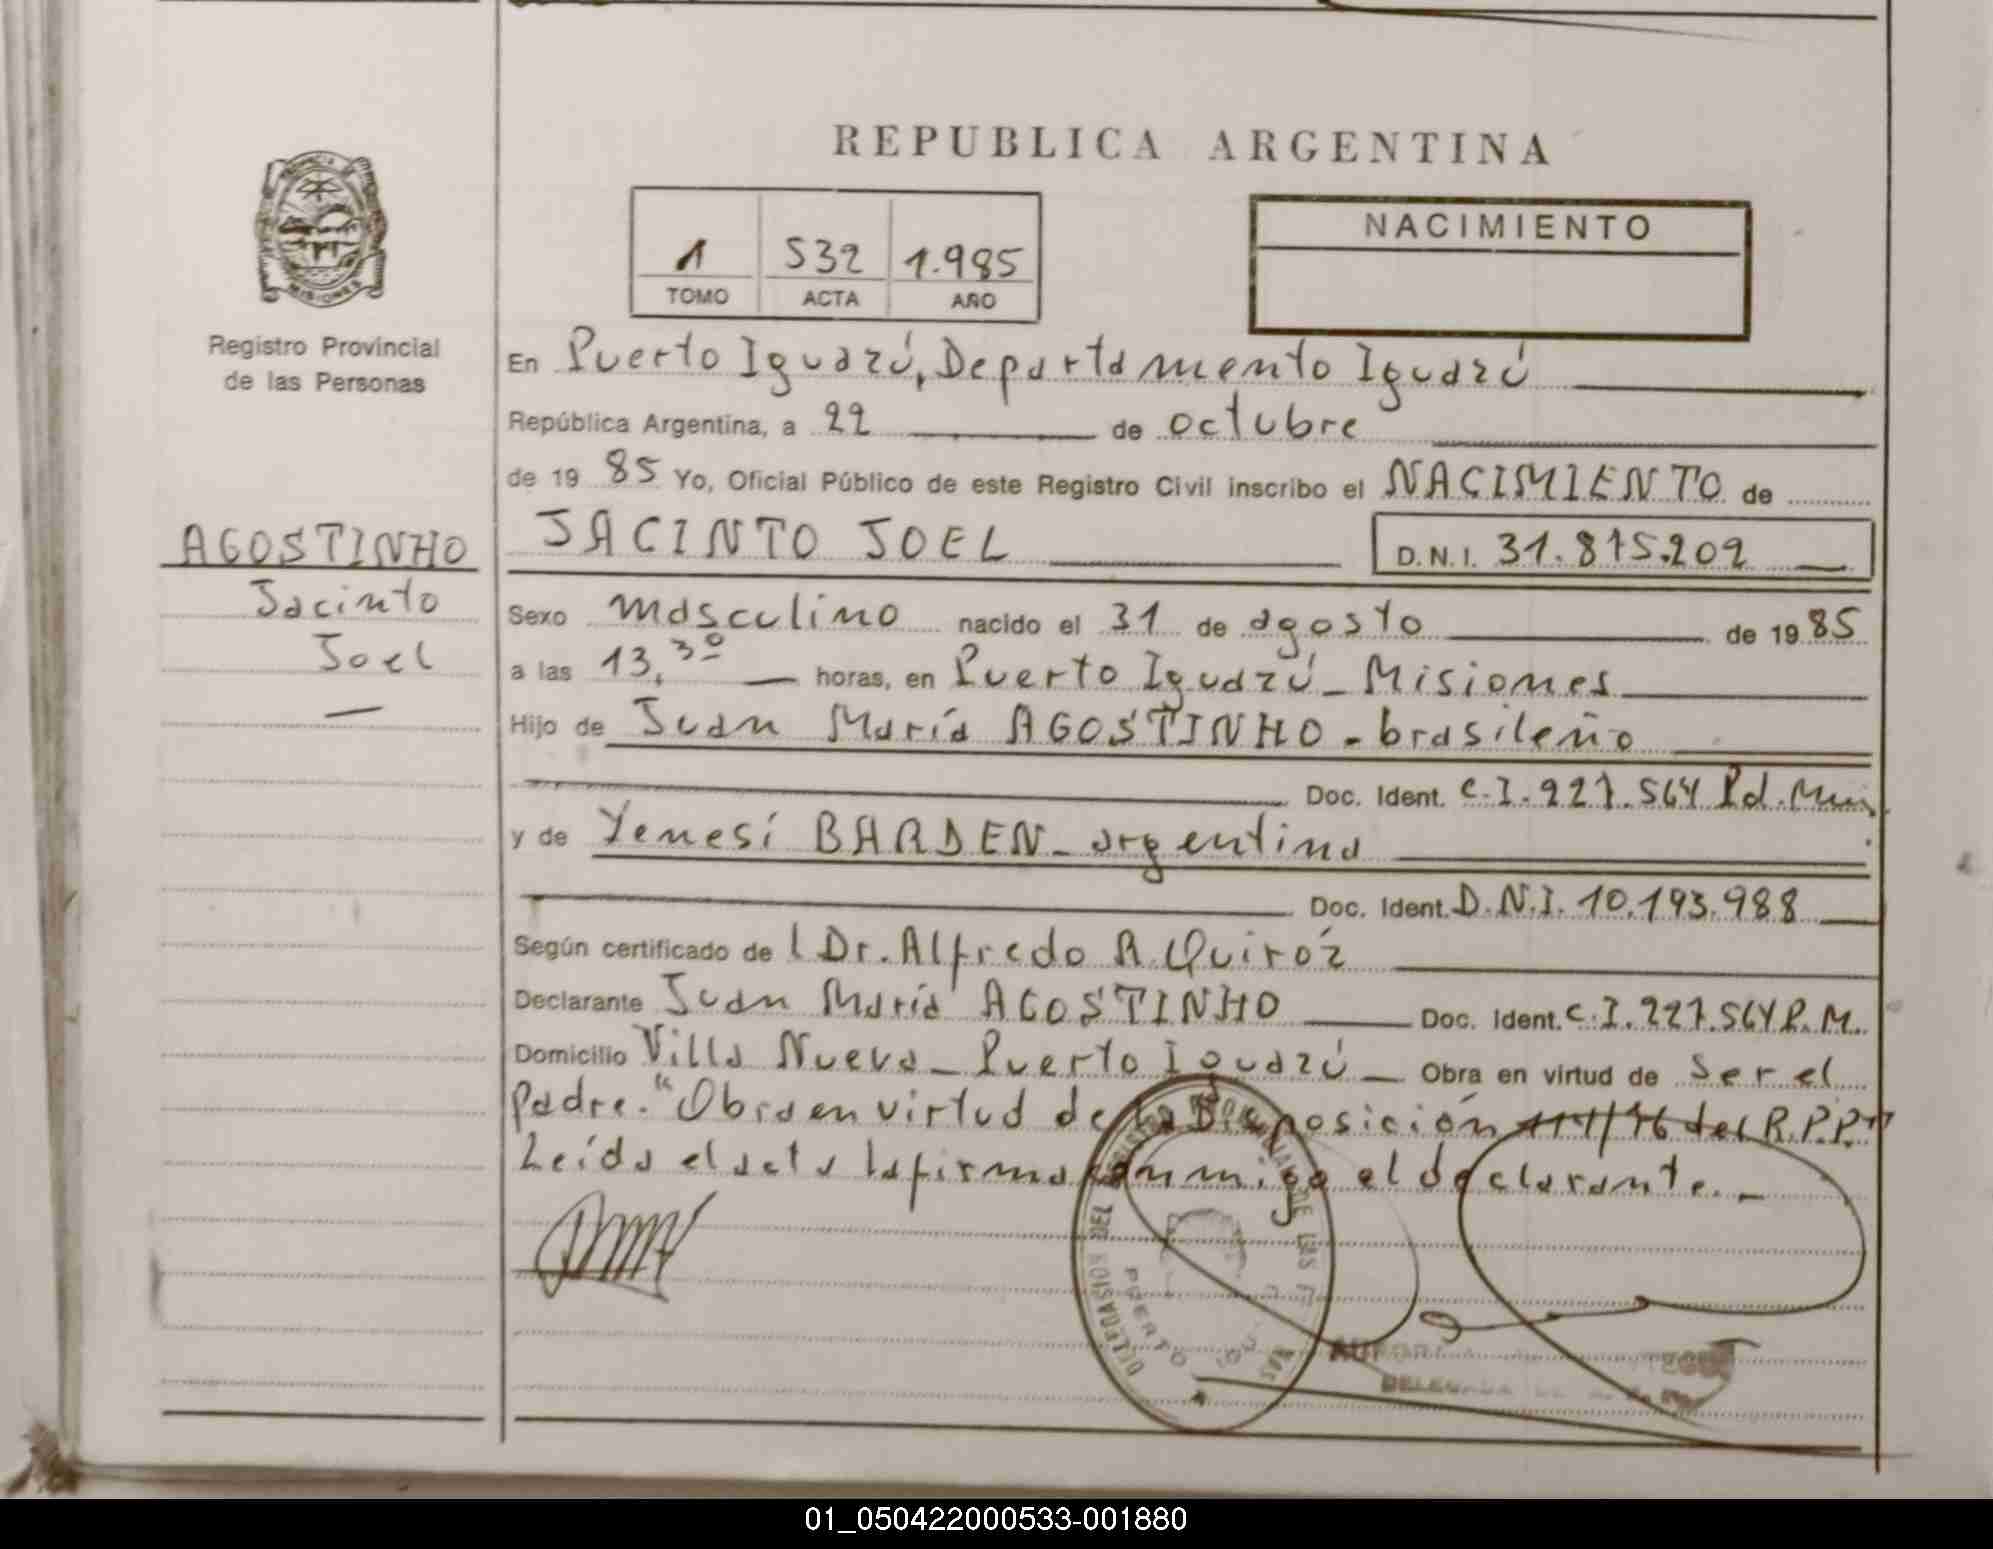 REPUBLICA ARGENTINA
PROVINCIA
MISIONES
Registro Provincial
de las Personas
1 532 1.985
TOMO ACTA AÑO
NACIMIENTO
En Puerto Iguazú, Departamento Iguazú
República Argentina, a 22 de octubre
de 19 85 Yo, Oficial Público de este Registro Civil inscribo el NACIMIENTO de
AGOSTINHO
Jacinto
Joel
JACINTO JOEL D.N.I. 31.815.202
Sexo masculino nacido el 31 de agosto de 19 85
a las 13,30 horas, en Puerto Iguazú - Misiones
Hijo de Juan María AGOSTINHO - brasileño
Doc. Ident. C.I. 227.564 Pol. Mis.
y de Yenesí BARDEN - argentina
Doc. Ident. D.N.I. 10.193.988
Según certificado de l Dr. Alfredo R. Quiróz
Declarante Juan María AGOSTINHO Doc. Ident. C.I. 227.564 P.M.
Domicilio Villa Nueva - Puerto Iguazú - Obra en virtud de Ser el
padre. "Obra en virtud de la Disposición del R.P.P."
Leída el acta la firma conmigo el declarante. -
DELEGACION DEL REGISTRO PROVINCIAL DE LAS PERSONAS
DELEGADA
01_050422000533-001880